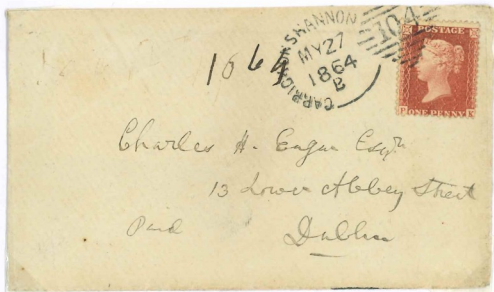 CARRICK-ON-SHANNON
MY 27
1864
B
104
POSTAGE
ONE PENNY
1864
Charles H. Esqr
13 Lower Abbey Street
Paid
Dublin